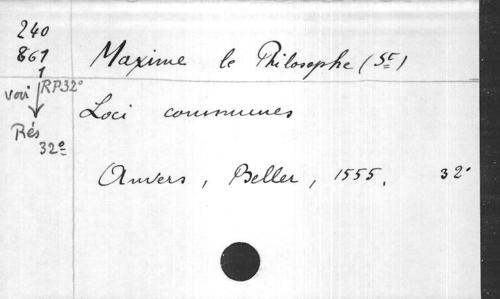 240
861
1
Maxime le Philosophe (St)
voir RP32°
Rés
32°
Loci communes
Anvers, Beller, 1555. 32°